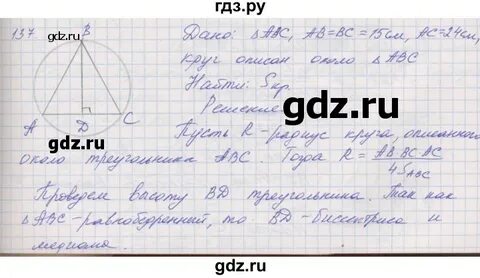 гдз.ру
137
B
A D C
Дано: △ABC, AB=BC=15см, AC=24см,
круг описан около △ABC
Найти: Sкр.
Решение
Пусть R-радиус круга, описанного
около треугольника ABC. Тогда R = AB BC AC / 4S_ABC
Проведем высоту BD треугольника. Так как
△ABC-равнобедренный, то BD-биссектриса и
медиана.
gdz.ru
gdz.ru
gdz.ru
gdz.ru
gdz.ru
gdz.ru